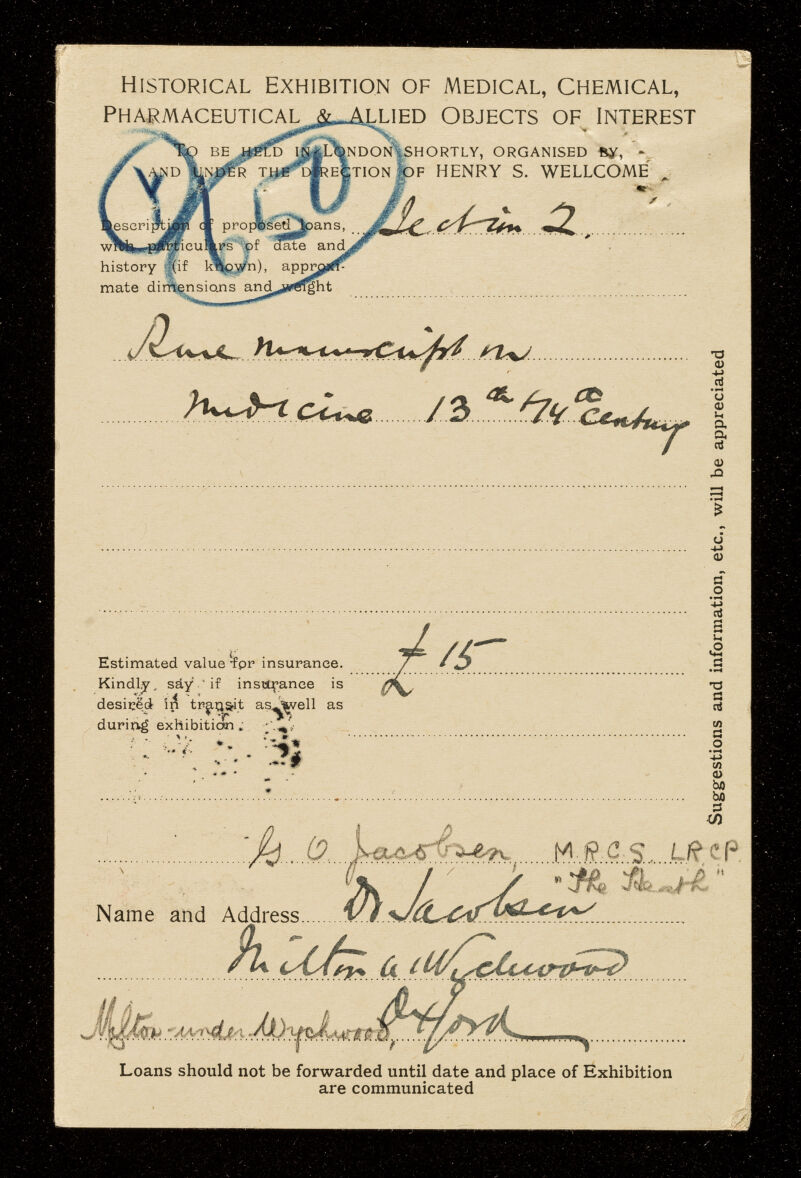 HISTORICAL EXHIBITION OF MEDICAL, CHEMICAL,
PHARMACEUTICAL & ALLIED OBJECTS OF INTEREST
TO BE HELD IN LONDON SHORTLY, ORGANISED BY,
AND UNDER THE DIRECTION OF HENRY S. WELLCOME
Y
650
Description of proposed loans, Section 2.
with particulars of date and
history (if known), approxi-
mate dimensions and weight
Rare Manuscript on
Medicine 13th & 14th Century
Estimated value for insurance. £15
Kindly say if insurance is
desired in transit as well as
during exhibition.
G. O. Jacobsen, M.R.C.S., L.R.C.P.
"The Heath"
Name and Address Dr Jacobsen
Milton u Wychwood
Milton-under-Wychwood, Oxford
Loans should not be forwarded until date and place of Exhibition
are communicated
Suggestions and information, etc., will be appreciated